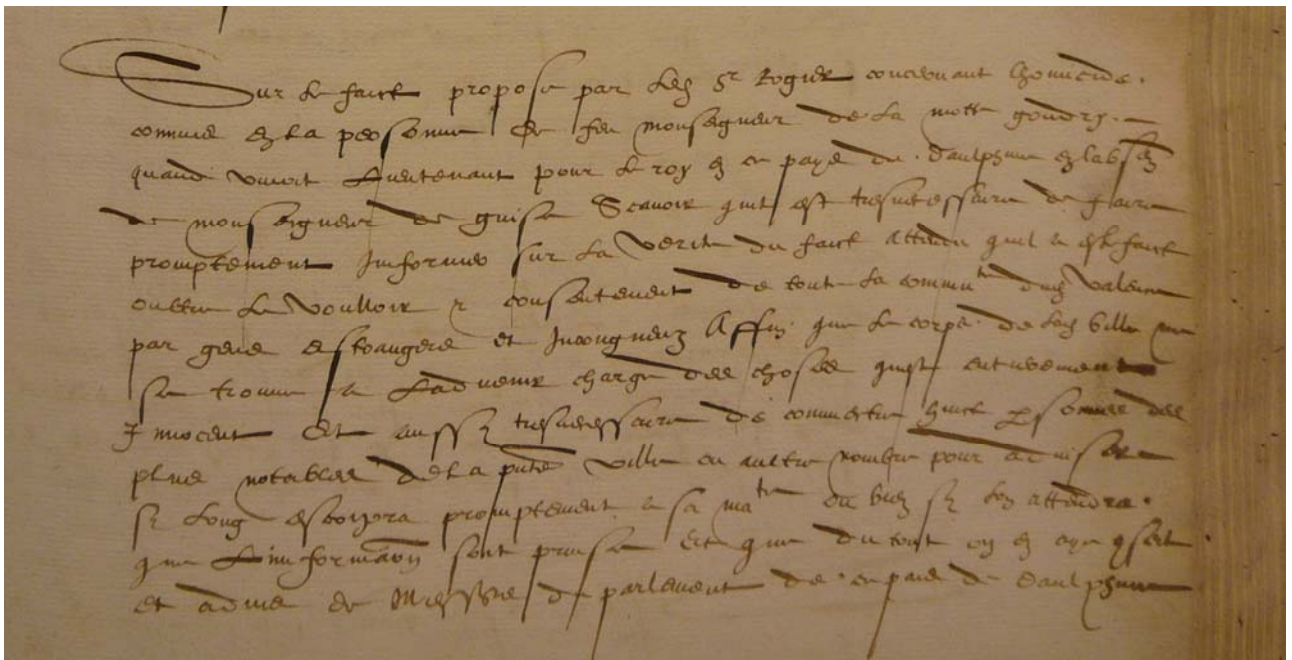 Sur le faict propose par led sr Rogier concernant lhomicide
commis en la personne de feu monseigneur de la motte gondrin
quand vivoit Lieutenant pour le roy en ce pays de daulphine en labsen
de monseigneur de guise Scavoir quil est tresnecessaire de faire
promptement Informer sur la verite du faict attendu quil a este faict
oultre le voulloir & consentement de toute la commu.te dud valence
par gens estrangers et Incongneuz Affin que le corps de lad ville ne
se trouve a ladvenir charge des choses quil est entierement
Innocent Et aussy tresnecessaire de commectre huict personnes des
plus notables de la pnte ville ou aultre nombre pour adviser
sy long escripra promptement a sa ma.te ou bien sy lon attendra
que Linformaon soit prinse Et que du tout on en aye conseil
et advis de Messrs de parlement de ce pais de daulphine